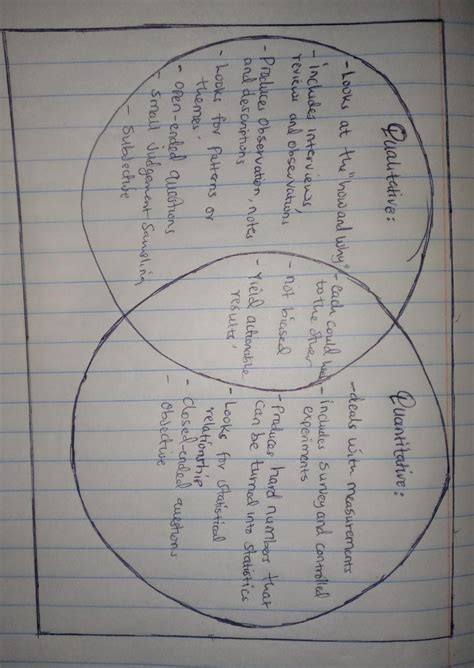 Qualitative:
- Looks at the "how and why"
- includes interviews,
reviews and observations
- Produces observation, notes
and descriptions
- Looks for patterns or
themes.
- open-ended questions
- small judgement sampling
- Subjective
- each could
to the other
- not biased
- Yield actionable
results.
Quantitative:
- deals with measurements
- includes survey and controlled
experiments
- Produces hard numbers that
can be turned into statistics
- Looks for statistical
relationship
- closed-ended questions
- objective